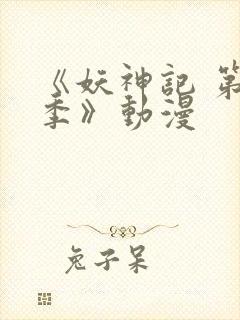 《妖神記 第
季》動漫
兔子呆